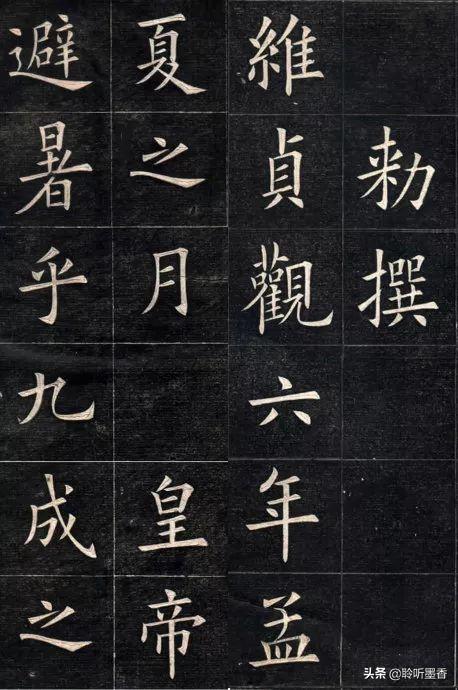 勑撰
維貞觀六年孟
夏之月 皇帝
避暑乎九成之
头条 @聆听墨香